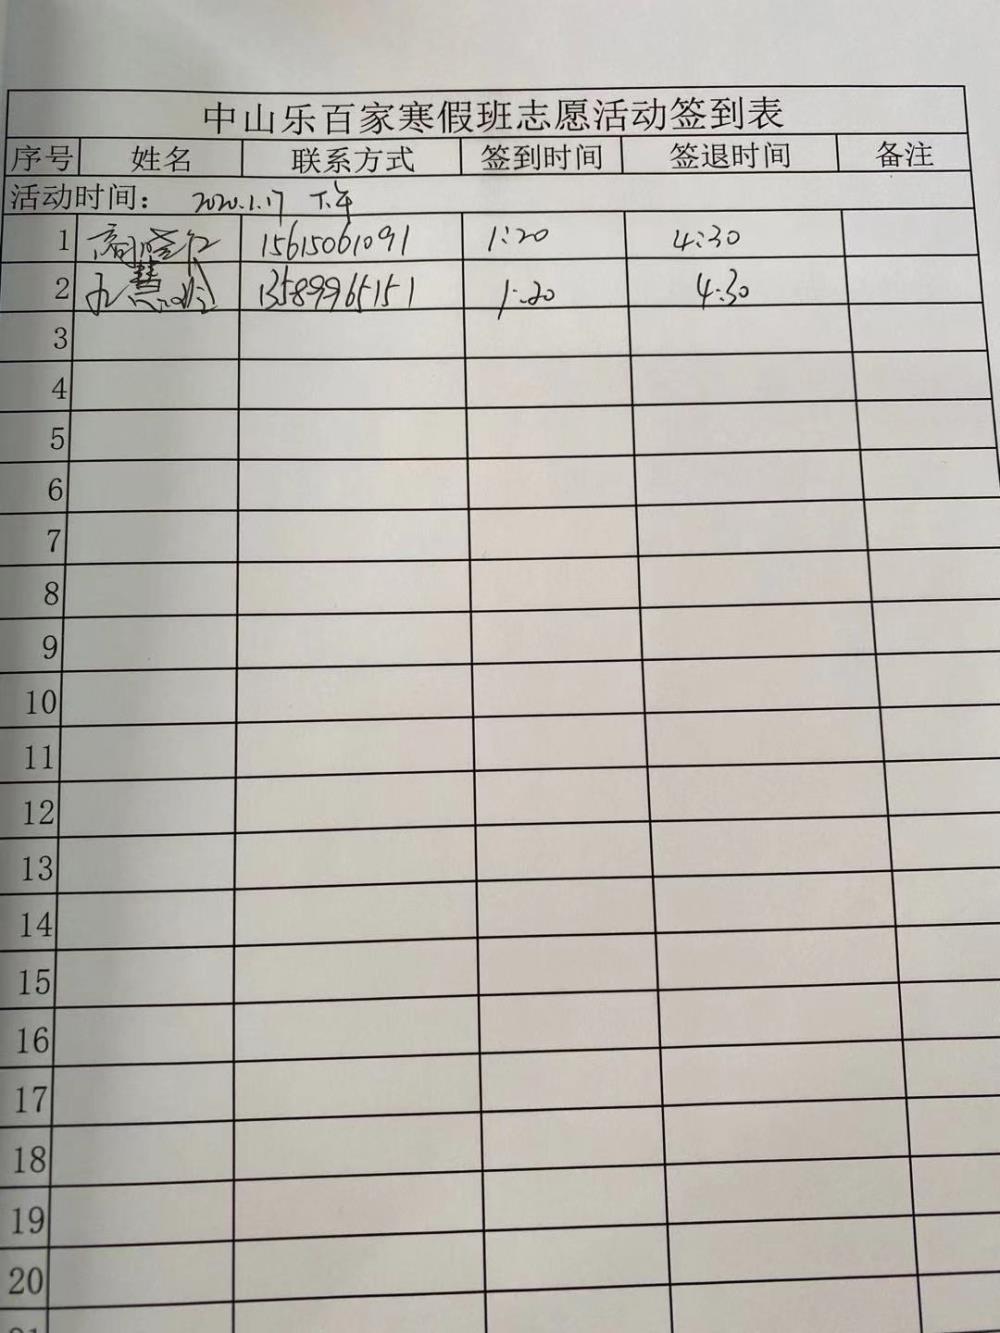 中山乐百家寒假班志愿活动签到表
序号 姓名 联系方式 签到时间 签退时间 备注
活动时间： 2020.1.17 下午
1 15615061091 1:20 4:30
2 13589965151 1:20 4:30
3
4
5
6
7
8
9
10
11
12
13
14
15
16
17
18
19
20